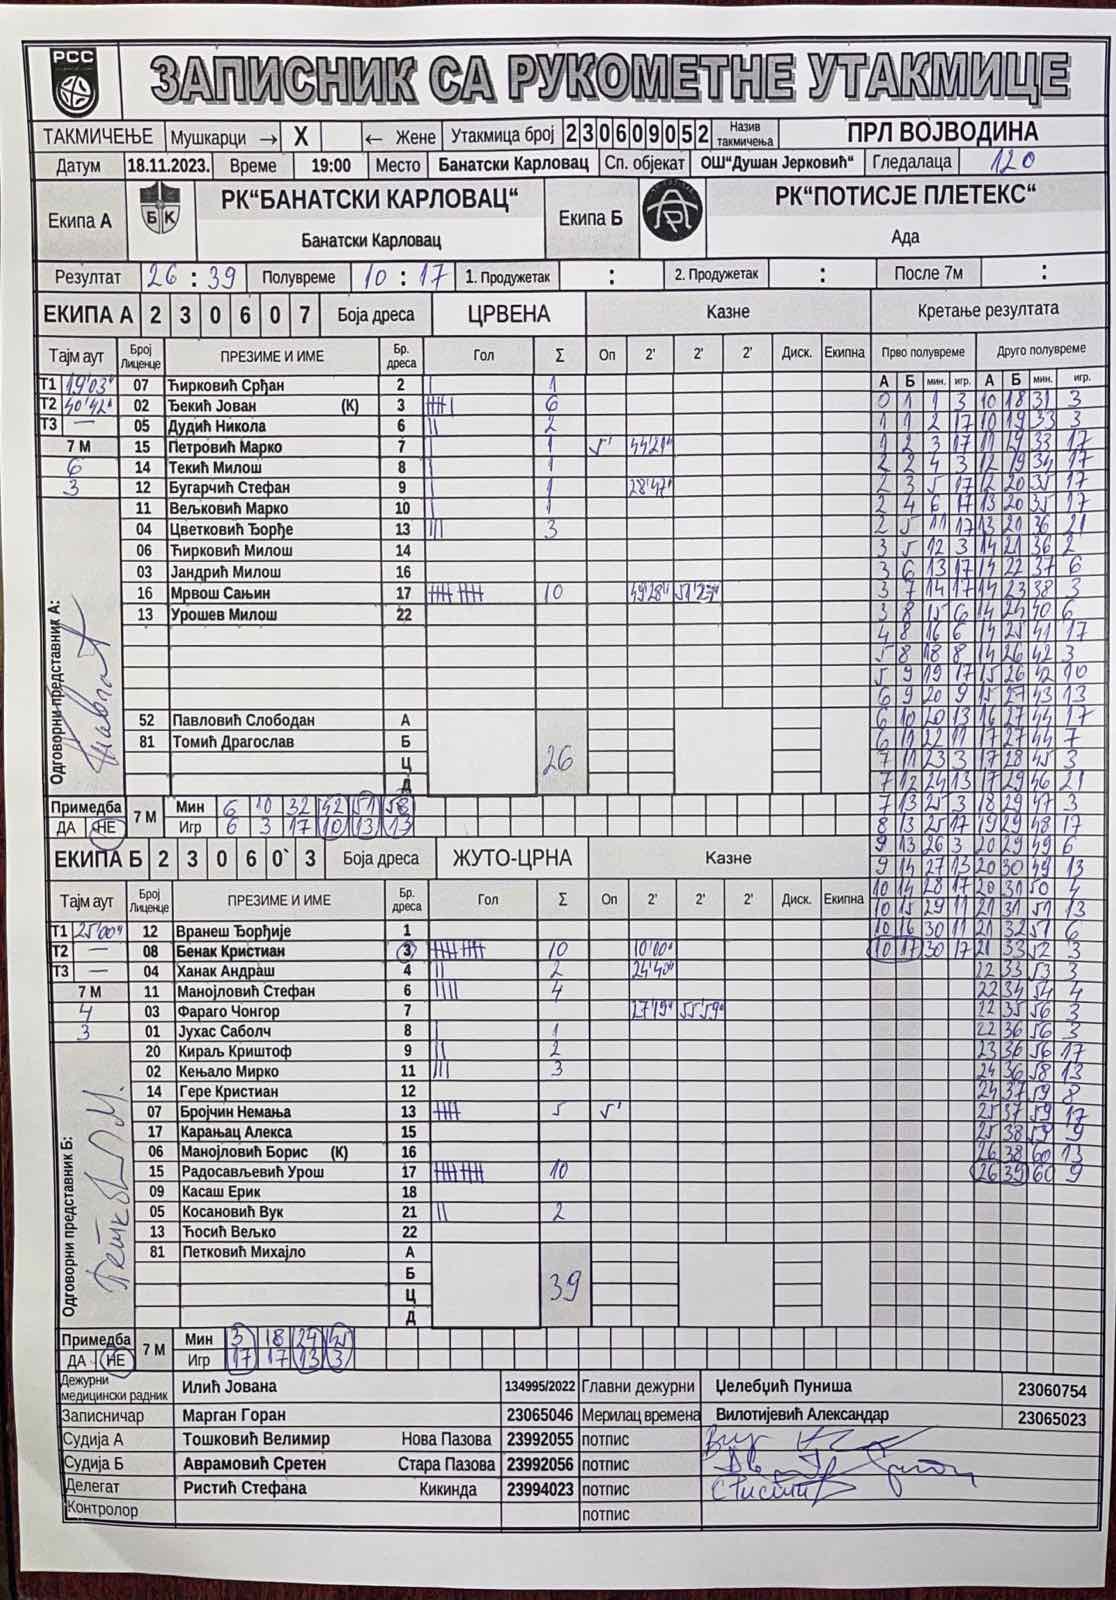 РСС
ЗАПИСНИК СА РУКОМЕТНЕ УТАКМИЦЕ
ТАКМИЧЕЊЕ Мушкарци → X ← Жене Утакмица број 230609052 Назив такмичења ПРЛ ВОЈВОДИНА
Датум 18.11.2023. Време 19:00 Место Банатски Карловац Сп. објекат ОШ"Душан Јерковић" Гледалаца 120
Екипа А БК РК"БАНАТСКИ КАРЛОВАЦ" Банатски Карловац Екипа Б РК"ПОТИСЈЕ ПЛЕТЕКС" Ада
Резултат 26 : 39 Полувреме 10 : 17 1. Продужетак : 2. Продужетак : После 7м :
ЕКИПА А 2 3 0 6 0 7 Боја дреса ЦРВЕНА Казне Кретање резултата
Тајм аут Број Лиценце ПРЕЗИМЕ И ИМЕ Бр. дреса Гол Σ Оп 2' 2' 2' Диск. Екипна Прво полувреме Друго полувреме
А Б мин. игр. А Б мин. игр.
Т1 19'03" 07 Ћирковић Срђан 2 1
Т2 40'42" 02 Ђекић Јован (К) 3 6
Т3 — 05 Дудић Никола 6 2
7 М 15 Петровић Марко 7 1 5' 44'21"
6 14 Текић Милош 8 1
3 12 Бугарчић Стефан 9 1 28'42"
11 Вељковић Марко 10 1
04 Цветковић Ђорђе 13 3
06 Ћирковић Милош 14
03 Јандрић Милош 16
16 Мрвош Сањин 17 10 49'28" 51'27"
13 Урошев Милош 22
Одговорни представник А:
52 Павловић Слободан А
81 Томић Драгослав Б
Ц
Д
26
Примедба ДА НЕ 7 М
Мин 6 10 32 42 51 58
Игр 6 3 17 10 13 13
ЕКИПА Б 2 3 0 6 0 3 Боја дреса ЖУТО-ЦРНА Казне
Тајм аут Број Лиценце ПРЕЗИМЕ И ИМЕ Бр. дреса Гол Σ Оп 2' 2' 2' Диск. Екипна
Т1 25'00" 12 Вранеш Ђорђије 1
Т2 — 08 Бенак Кристиан 3 10 10'00"
Т3 — 04 Ханак Андраш 4 2 24'40"
7 М 11 Манојловић Стефан 6 4
4 03 Фараго Чонгор 7 27'19" 55'59"
3 01 Јухас Саболч 8 1
20 Кираљ Криштоф 9 2
02 Кењало Мирко 11 3
14 Гере Кристиан 12
07 Бројчин Немања 13 5 5'
17 Карањац Алекса 15
06 Манојловић Борис (К) 16
15 Радосављевић Урош 17 10
09 Касаш Ерик 18
05 Косановић Вук 21 2
13 Ћосић Вељко 22
Одговорни представник Б:
81 Петковић Михајло А
Б
Ц
Д
39
Примедба ДА НЕ 7 М
Мин 3 18 24 45
Игр 17 17 13 3
0 1 1 3 10 18 31 3
1 1 2 17 10 19 33 3
1 2 3 17 11 19 33 17
2 2 4 3 12 19 34 17
2 3 5 17 12 20 35 17
2 4 6 17 13 20 35 17
2 5 11 17 13 21 36 21
3 5 12 3 14 21 36 2
3 6 13 17 14 22 37 6
3 7 14 17 14 23 38 3
3 8 15 6 14 24 40 6
4 8 16 6 14 25 41 17
5 8 18 8 14 26 42 3
5 9 19 17 15 26 42 10
6 9 20 9 15 27 43 13
6 10 20 13 16 27 44 17
6 11 22 11 17 27 44 7
7 11 23 3 17 28 45 3
7 12 24 13 17 29 46 21
7 13 25 3 18 29 47 3
8 13 25 17 19 29 48 17
9 13 26 3 20 29 49 6
9 14 27 13 20 30 49 13
10 14 28 17 20 31 50 4
10 15 29 11 21 31 51 13
10 16 30 11 21 32 51 6
10 17 30 17 21 33 52 3
22 33 53 3
22 34 54 4
22 35 56 3
22 36 56 3
23 36 56 17
24 36 58 13
24 37 59 8
25 37 59 17
25 38 59 9
26 38 60 13
26 39 60 9
Дежурни медицински радник Илић Јована 134995/2022 Главни дежурни Џелебџић Пуниша 23060754
Записничар Марган Горан 23065046 Мерилац времена Вилотијевић Александар 23065023
Судија А Тошковић Велимир Нова Пазова 23992055 потпис
Судија Б Аврамовић Сретен Стара Пазова 23992056 потпис
Делегат Ристић Стефана Кикинда 23994023 потпис
Контролор потпис